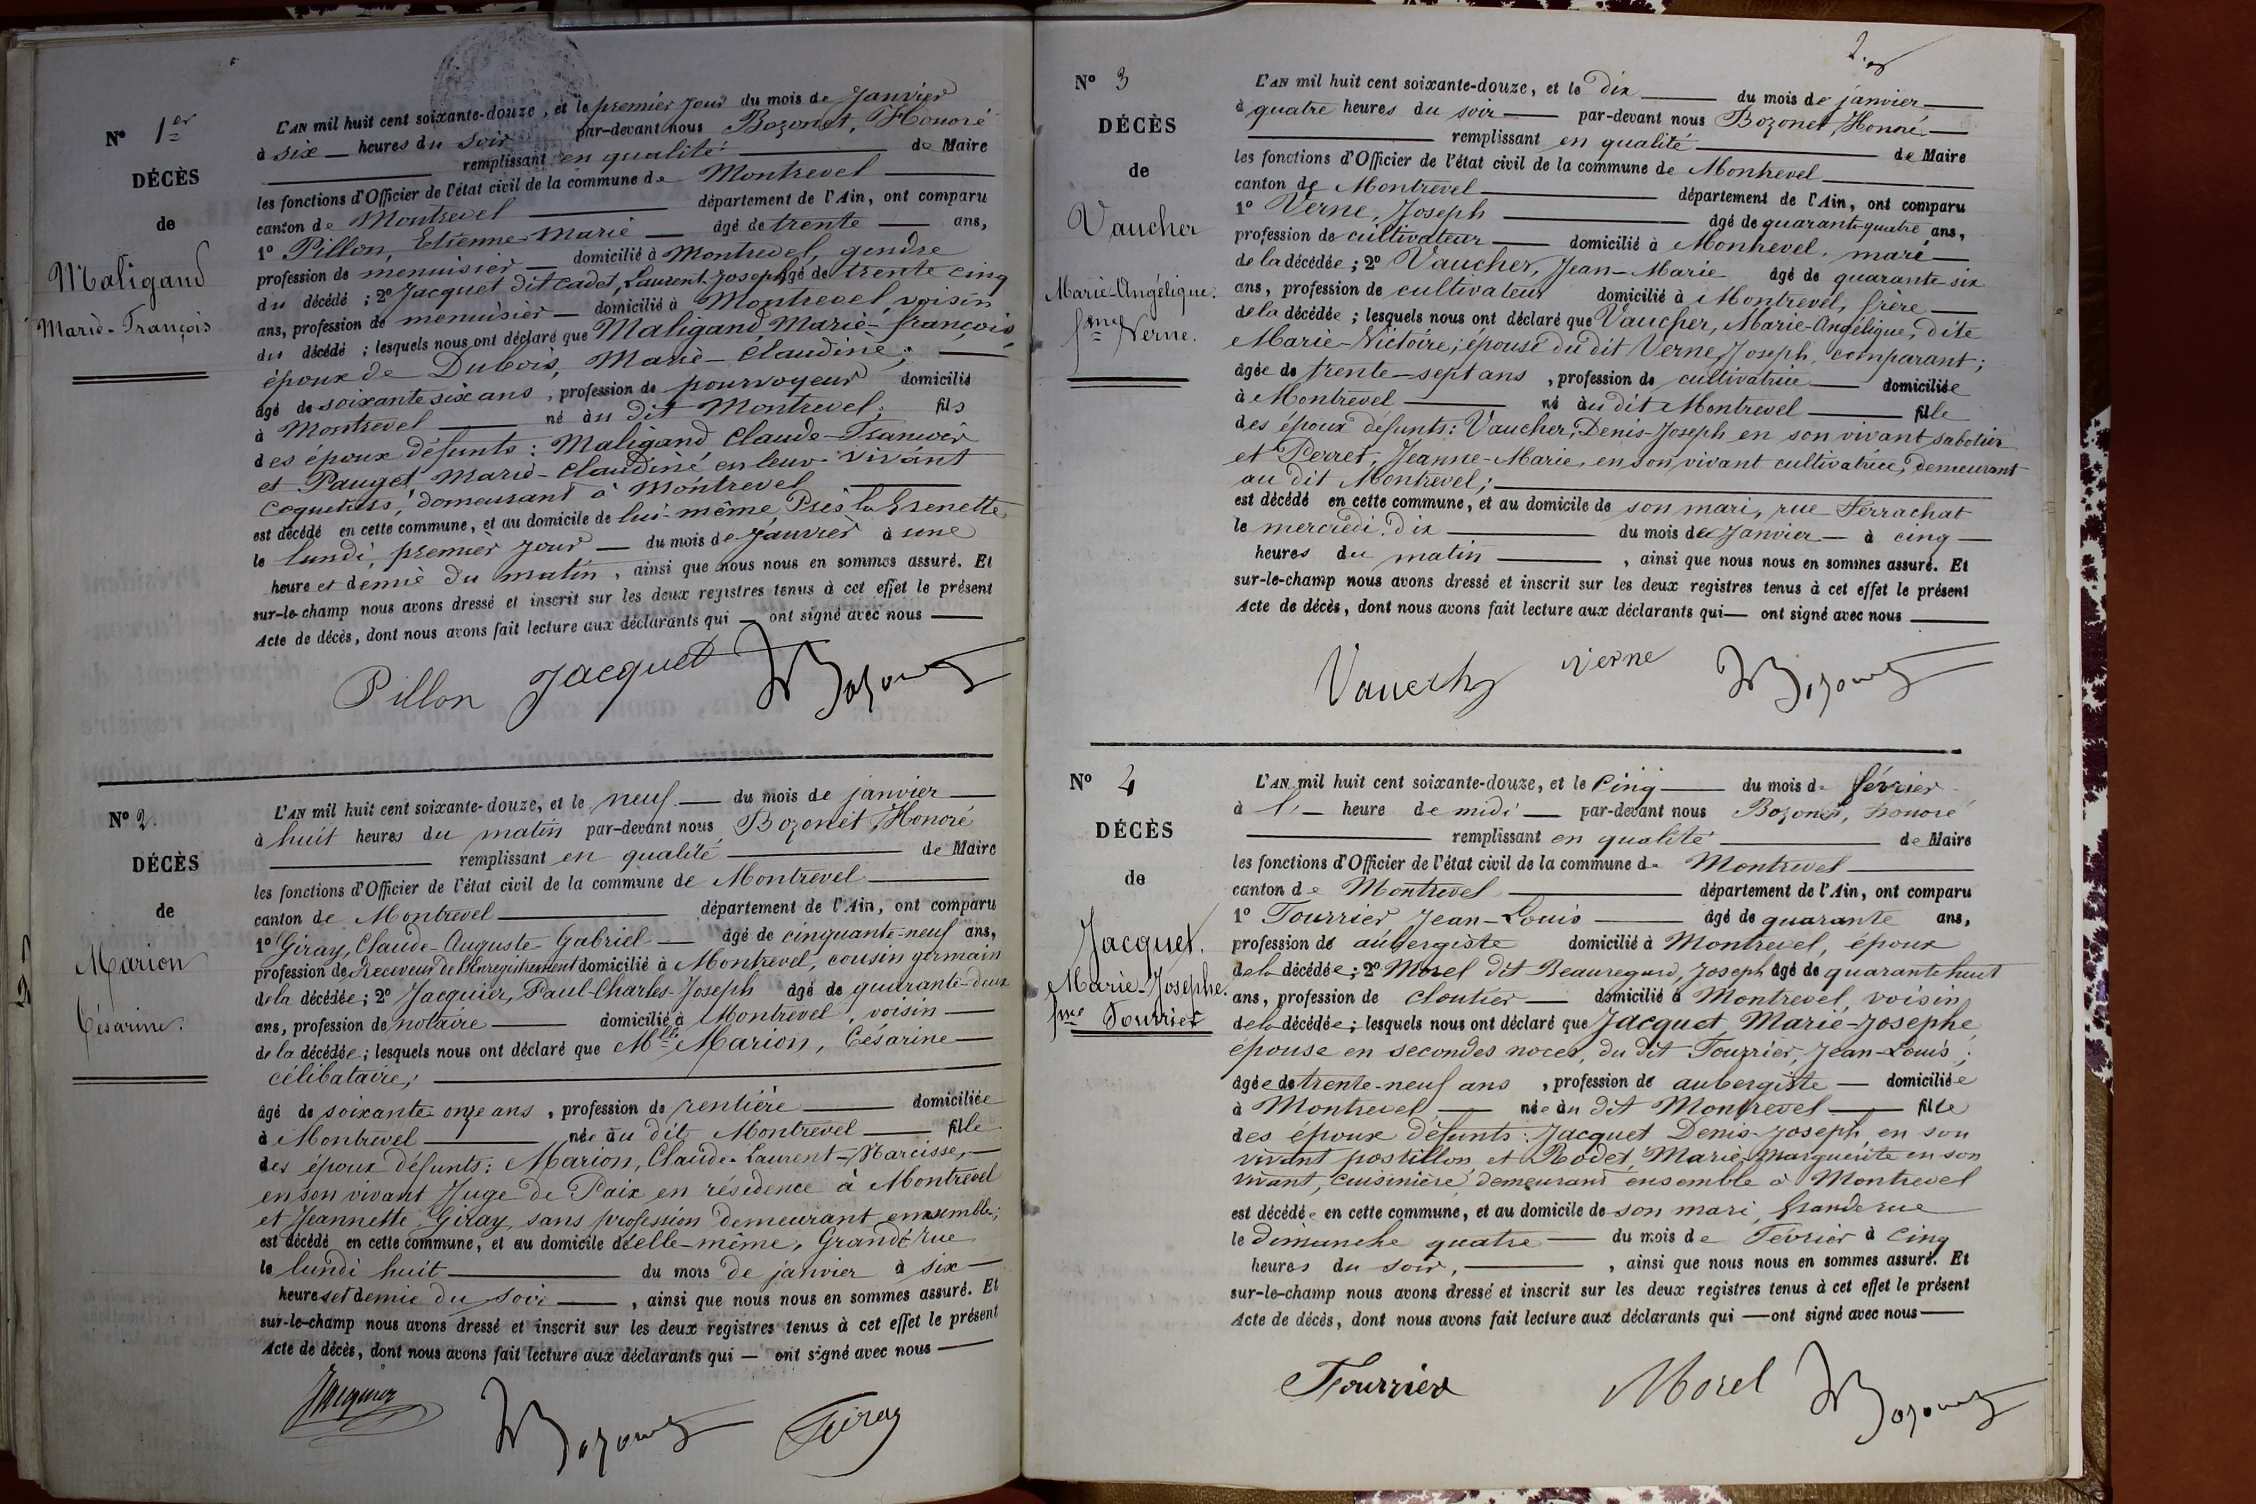 Nº 1er
DÉCÈS
de
Maligand
Marie-François
L'AN mil huit cent soixante-douze, et le premier jour du mois de Janvier
à six heures du soir par-devant nous Bozonet, Honoré
remplissant en qualité de Maire
les fonctions d'Officier de l'état civil de la commune de Montrevel
canton de Montrevel département de l'Ain, ont comparu
1º Pillon, Etienne-Marie âgé de trente ans,
profession de menuisier domicilié à Montrevel, gendre
du décédé ; 2º Jacquet dit Cadet, Laurent-Joseph âgé de trente cinq
ans, profession de menuisier domicilié à Montrevel, voisin
du décédé ; lesquels nous ont déclaré que Maligand, Marie-François
époux de Dubois, Marie-Claudine ;
âgé de soixante six ans, profession de pourvoyeur domicilié
à Montrevel né au dit Montrevel ; fils
des époux défunts : Maligand Claude-François
et Pauget, Marie-Claudine en leur vivant
coquetiers, demeurant à Montrevel
est décédé en cette commune, et au domicile de lui-même, Près la Grenette
le lundi, premier jour du mois de Janvier à une
heure et demie du matin, ainsi que nous nous en sommes assuré. Et
sur-le-champ nous avons dressé et inscrit sur les deux registres tenus à cet effet le présent
Acte de décès, dont nous avons fait lecture aux déclarants qui ont signé avec nous
Pillon Jacquet HBozonet
Nº 2.
DÉCÈS
de
Marion
Césarine.
L'AN mil huit cent soixante-douze, et le neuf du mois de janvier
à huit heures du matin par-devant nous Bozonet, Honoré
remplissant en qualité de Maire
les fonctions d'Officier de l'état civil de la commune de Montrevel
canton de Montrevel département de l'Ain, ont comparu
1º Giray, Claude-Auguste-Gabriel âgé de cinquante-neuf ans,
profession de Receveur de l'Enregistrement domicilié à Montrevel, cousin germain
de la décédée ; 2º Jacquier, Paul-Charles-Joseph âgé de quarante-deux
ans, profession de notaire domicilié à Montrevel, voisin
de la décédée ; lesquels nous ont déclaré que Mlle Marion, Césarine
célibataire ;
âgé de soixante-onze ans, profession de rentière domiciliée
à Montrevel née au dit Montrevel fille
des époux défunts : Marion, Claude-Laurent-Narcisse,
en son vivant Juge de Paix en résidence à Montrevel
et Jeannette Giray, sans profession demeurant ensemble ;
est décédé en cette commune, et au domicile d'elle-même, Grande rue
le lundi huit du mois de janvier à six
heures et demie du soir, ainsi que nous nous en sommes assuré. Et
sur-le-champ nous avons dressé et inscrit sur les deux registres tenus à cet effet le présent
Acte de décès, dont nous avons fait lecture aux déclarants qui ont signé avec nous
Jacquier HBozonet Giray
Nº 3
DÉCÈS
de
Vaucher
Marie-Angélique.
fme Verne.
L'AN mil huit cent soixante-douze, et le dix du mois de janvier
à quatre heures du soir par-devant nous Bozonet, Honoré
remplissant en qualité de Maire
les fonctions d'Officier de l'état civil de la commune de Montrevel
canton de Montrevel département de l'Ain, ont comparu
1º Verne, Joseph âgé de quarante-quatre ans,
profession de cultivateur domicilié à Montrevel, mari
de la décédée ; 2º Vaucher, Jean-Marie âgé de quarante-six
ans, profession de cultivateur domicilié à Montrevel, frère
de la décédée ; lesquels nous ont déclaré que Vaucher, Marie-Angélique, dite
Marie-Victoire ; épouse du dit Verne, Joseph, comparant ;
âgée de trente-sept ans, profession de cultivatrice domiciliée
à Montrevel né au dit Montrevel fille
des époux défunts : Vaucher, Denis-Joseph en son vivant sabotier
et Perret, Jeanne-Marie, en son vivant cultivatrice, demeurant
au dit Montrevel ;
est décédé en cette commune, et au domicile de son mari, rue Ferrachat
le mercredi dix du mois de Janvier à cinq
heures du matin, ainsi que nous nous en sommes assuré. Et
sur-le-champ nous avons dressé et inscrit sur les deux registres tenus à cet effet le présent
Acte de décès, dont nous avons fait lecture aux déclarants qui ont signé avec nous
Verne HBozonet
Nº 4
DÉCÈS
de
Jacquet.
Marie-Josephe.
fme Fourrier
L'AN mil huit cent soixante-douze, et le cinq du mois de février
à l' heure de midi par-devant nous Bozonet, honoré
remplissant en qualité de Maire
les fonctions d'Officier de l'état civil de la commune de Montrevel
canton de Montrevel département de l'Ain, ont comparu
1º Fourrier Jean-Louis âgé de quarante ans,
profession de aubergiste domicilié à Montrevel, époux
de la décédée ; 2º Morel dit Beauregard, Joseph âgé de quarante huit
ans, profession de cloutier domicilié à Montrevel, voisin
de la décédée ; lesquels nous ont déclaré que Jacquet, Marie-Josephe
épouse en secondes noces, du dit Fourrier, Jean-Louis ;
âgée de trente-neuf ans, profession de aubergiste domiciliée
à Montrevel née au dit Montrevel fille
des époux défunts : Jacquet Denis-Joseph, en son
vivant postillon, et Rodet, Marie-Marguerite en son
vivant, cuisinière, demeurant ensemble à Montrevel
est décédée en cette commune, et au domicile de son mari, Grande rue
le dimanche quatre du mois de Février à cinq
heures du soir, ainsi que nous nous en sommes assuré. Et
sur-le-champ nous avons dressé et inscrit sur les deux registres tenus à cet effet le présent
Acte de décès, dont nous avons fait lecture aux déclarants qui ont signé avec nous
Fourrier Morel HBozonet